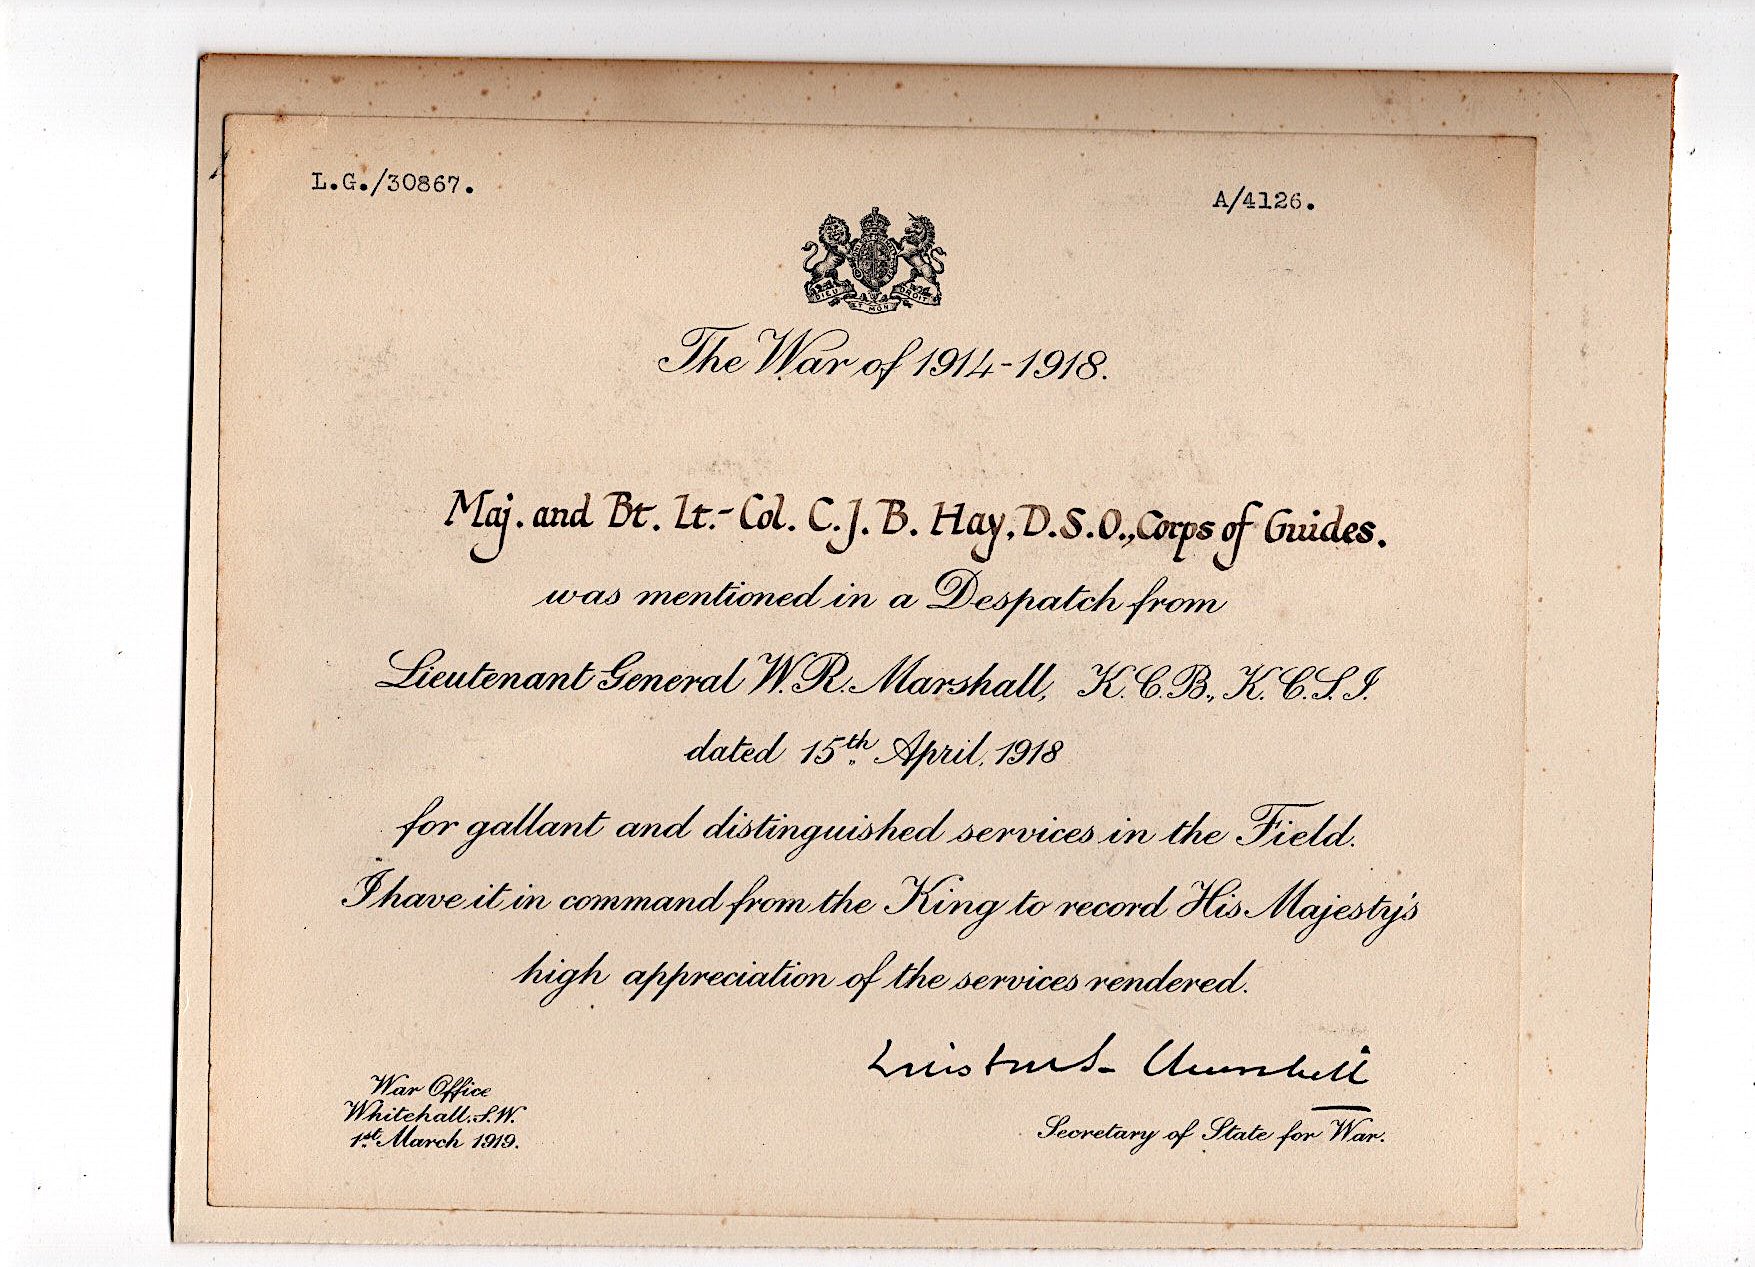 L.G./30867.
A/4126.
DIEU ET MON DROIT
The War of 1914-1918.
Maj. and Bt. Lt.-Col. C.J.B. Hay, D.S.O., Corps of Guides.
was mentioned in a Despatch from
Lieutenant General W.R. Marshall, K.C.B., K.C.S.I.
dated 15th April, 1918
for gallant and distinguished services in the Field.
I have it in command from the King to record His Majesty's
high appreciation of the services rendered.
Winston S. Churchill
War Office
Whitehall, S.W.
1st March 1919.
Secretary of State for War.